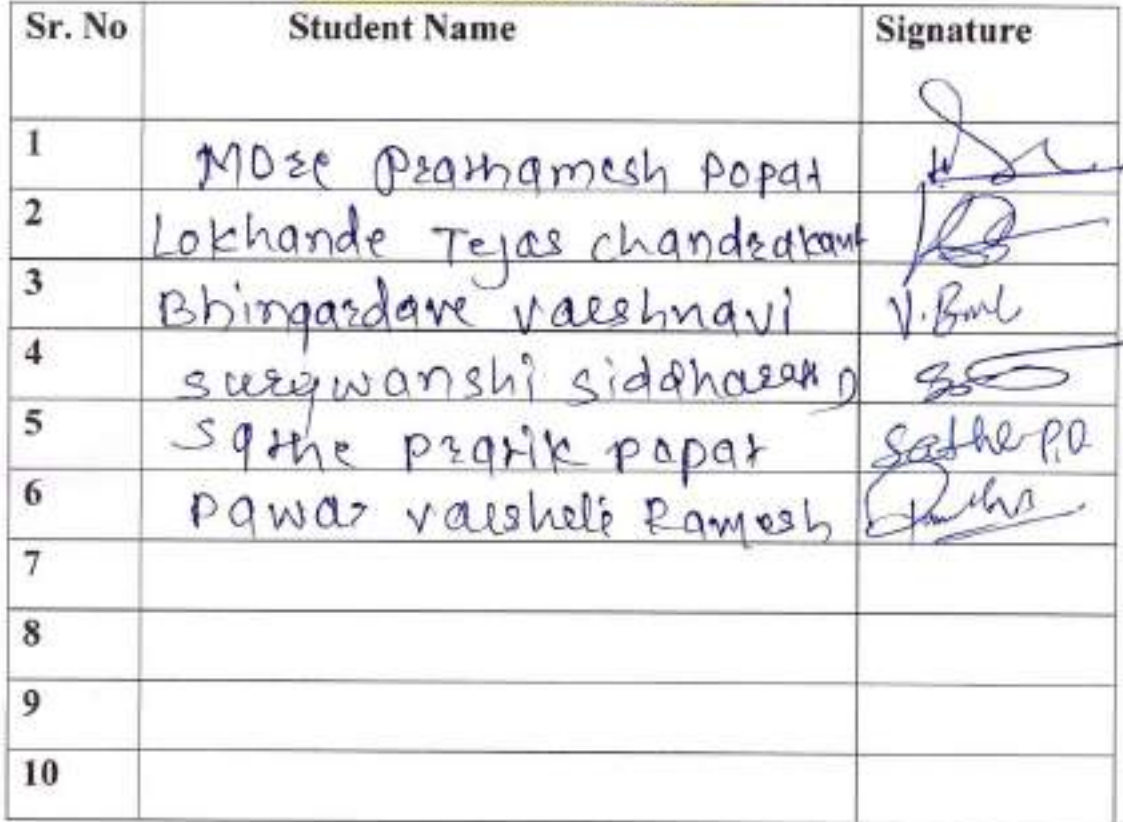 Sr. No Student Name Signature
1 More Prathamesh Popat
2 Lokhande Tejas Chandrakant
3 Bhingardave Vaishnavi V. Bml
4 Surywanshi Siddharth D
5 Sathe Pratik Popat Sathe P.P.
6 Pawar Vaishali Ramesh
7
8
9
10